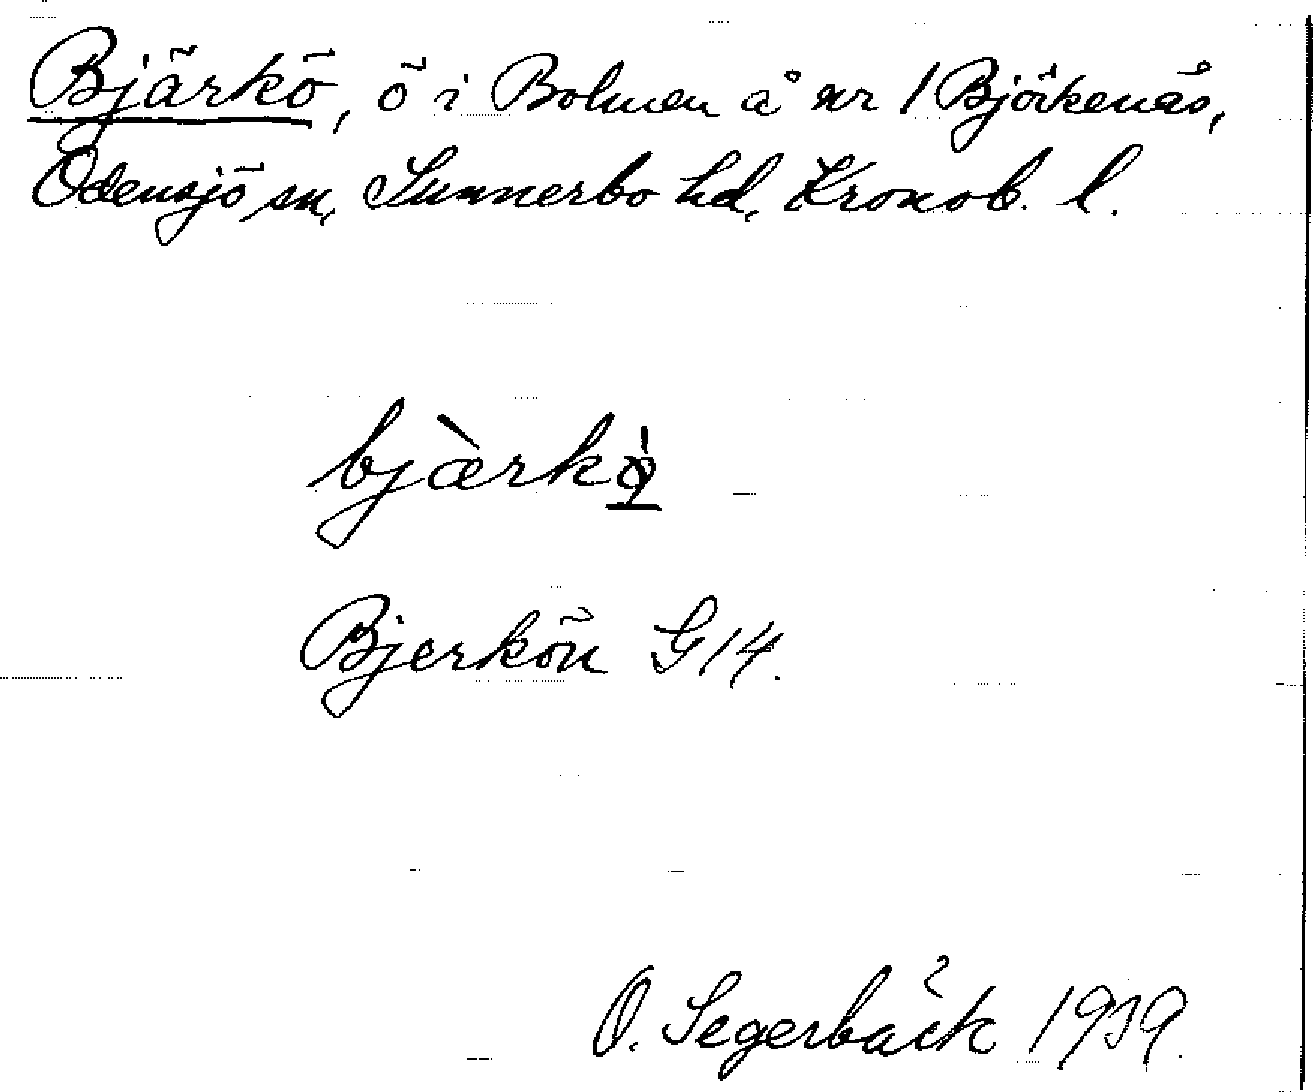 Bjärkö, ö i Bolmen å nr 1 Björkenäs,
Odensjö sn, Sunnerbo hd, Kronob. l.
bjæ̀rkø̨̀
Bjerkön G14.
O. Segerbäck 1939.